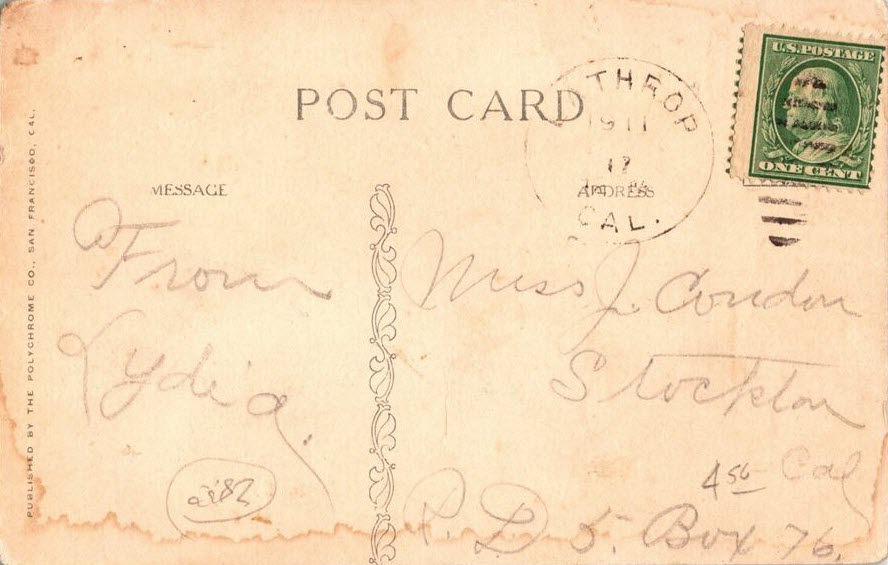 POST CARD
THROP
1911
17
CAL.
U.S. POSTAGE
ONE CENT
MESSAGE
ADDRESS
From
Lydia.
Miss J. Condon
Stockton
Cal
4 50
R. D 5. Box 76.
PUBLISHED BY THE POLYCHROME CO., SAN FRANCISCO, CAL.